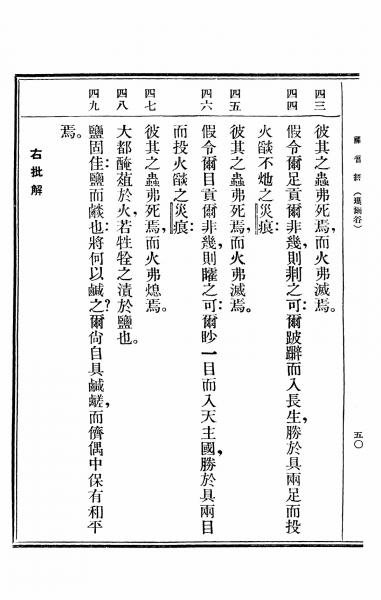 （瑪爾谷）
五〇
四三 彼其之蟲弗死焉，而火弗滅焉。
四四 假令爾足貢爾非幾，則剕之可：爾跛躃而入長生，勝於具兩足而投
火燄不灺之災痕：
四五 彼其之蟲弗死焉，而火弗滅焉。
四六 假令爾目貢爾非幾，則矐之可：爾眇一目而入天主國，勝於具兩目
而投火燄之災痕：
四七 彼其之蟲弗死焉，而火弗熄焉。
四八 大都醃葅於火，若牲牷之漬於鹽也。
四九 鹽固佳，鹽而醶也：將何以鹹之？爾尙自具鹹鹺，而儕偶中保有和平
焉。
右批解